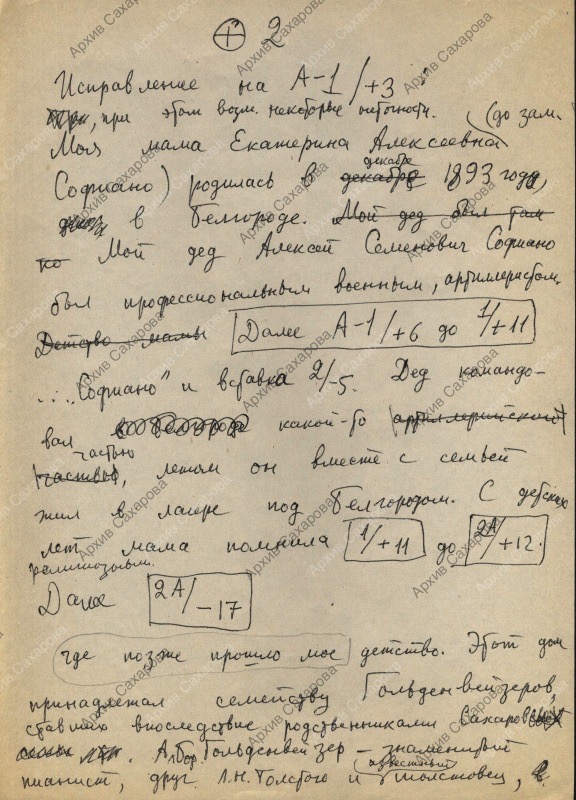 ⊕ 2
Исправление на А-1/+3
, при этом возм. некоторые неточности.
(до зам.
Моя мама Екатерина Алексеевна
декабре
Софиано) родилась в декабре 1893 году,
в Белгороде. Мой дед был там
ко Мой дед Алексей Семенович Софиано
был профессиональным военным, артиллеристом.
Детство мамы Далее А-1/+6 до 1/+11
...Софиано" и вставка 2/-5. Дед командо-
вал в Белгороде какой-то артиллерийской
частью
частью, летом он вместе с семьей
жил в лагере под Белгородом. С детских
лет мама помнила 1/+11 до 2А/+12.
религиозным.
Далее 2А/-17
где позже прошло мое детство. Этот дом
принадлежал семейству Гольденвейзеров,
ставших впоследствие родственниками Сахаровых
. А. Бор. Гольденвейзер – знаменитый
известный
пианист, друг Л.Н.Толстого и толстовец,
Архив Сахарова